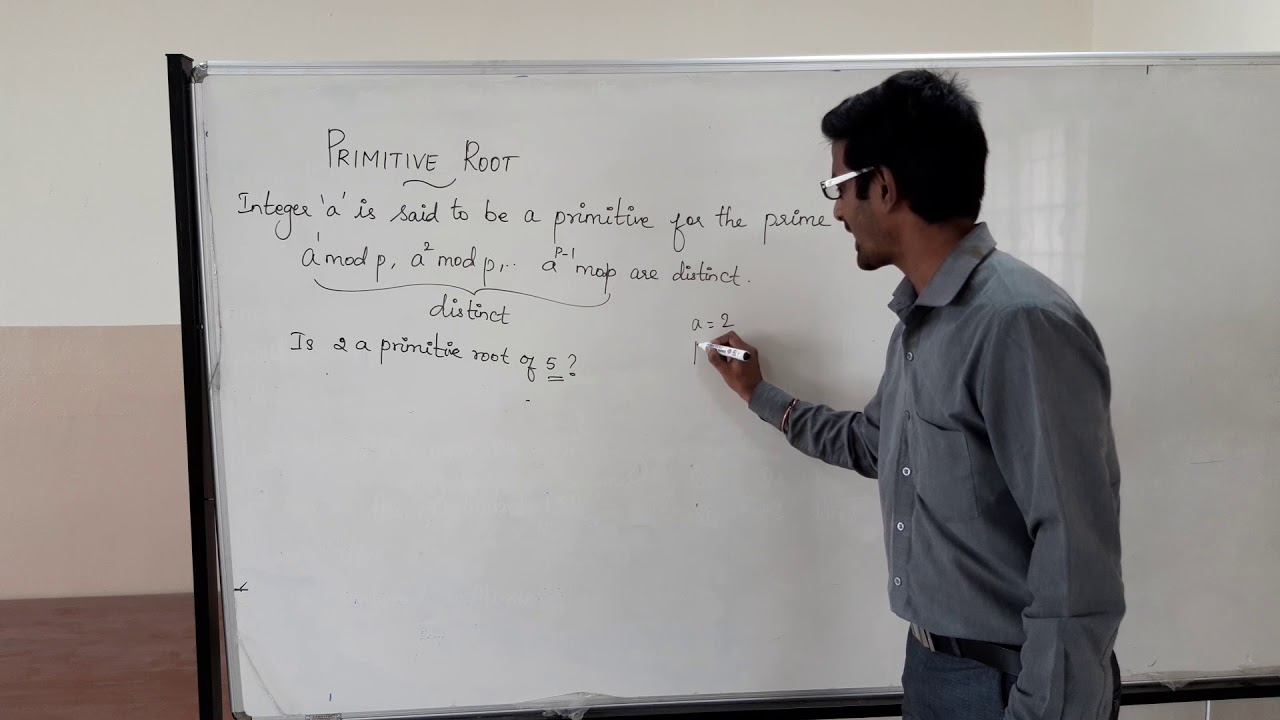 PRIMITIVE ROOT
Integer 'a' is said to be a primitive for the prime
a¹ mod p, a² mod p, .. a^p-1 mop are distinct.
distinct
Is 2 a primitive root of 5?
a = 2